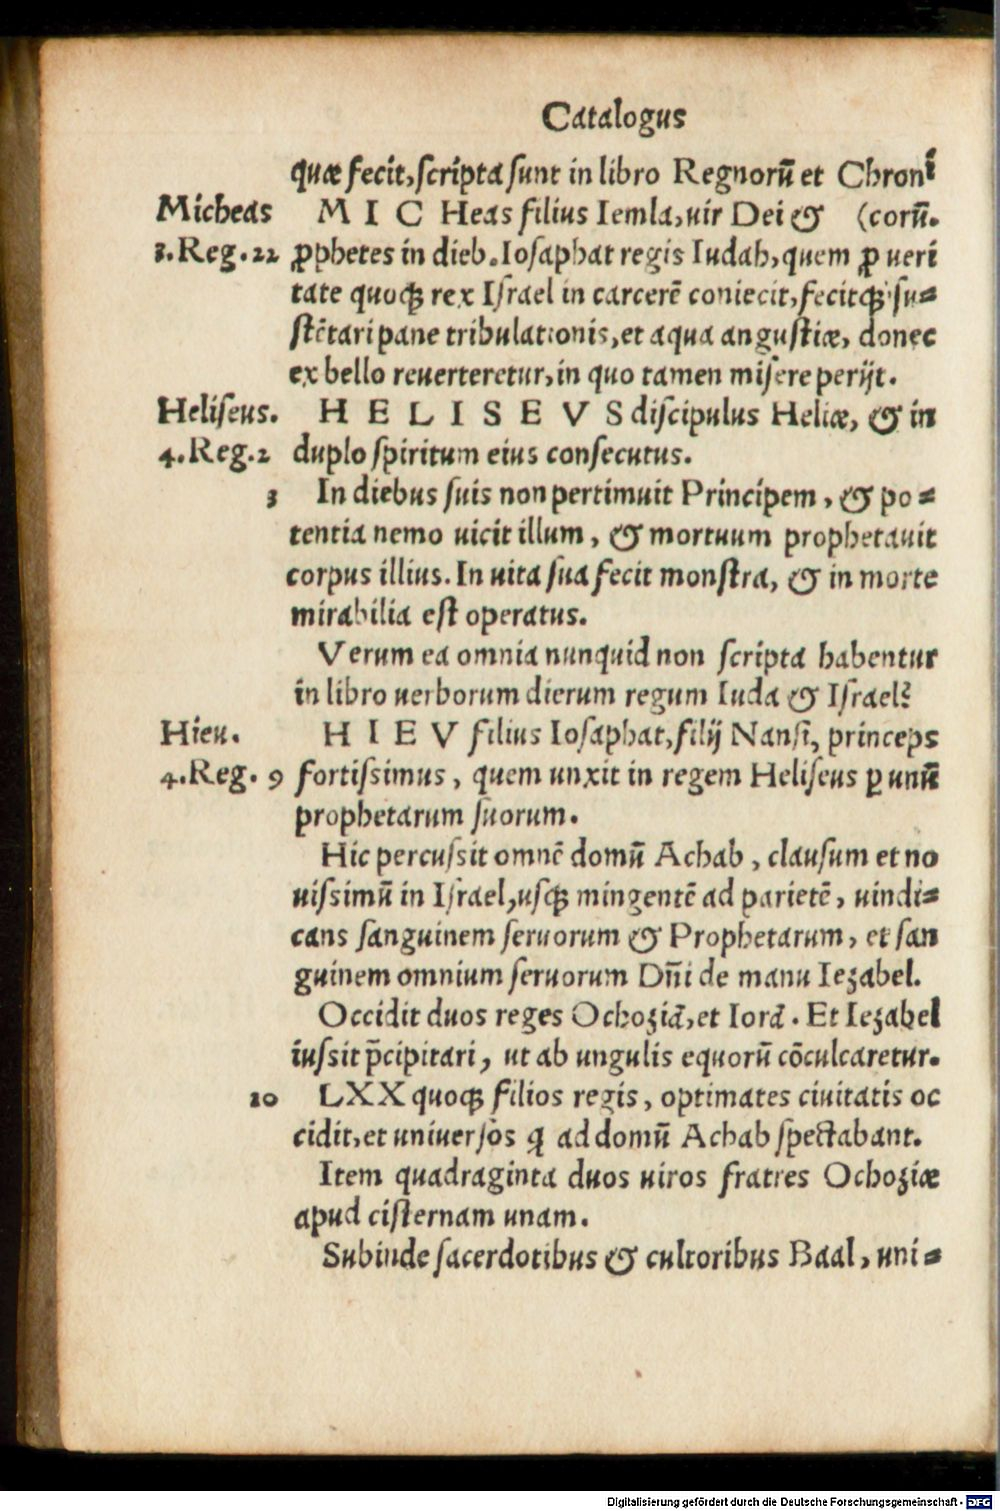 Catalogus
quæ fecit, scripta sunt in libro Regnorū et Chronī
Micheas M I C Heas filius Iemla, uir Dei & (corū.
3. Reg. 22 ꝓphetes in dieb. Iosaphat regis Iudah, quem ꝓ ueri
tate quoqꝫ rex Israel in carcerē coniecit, fecitqꝫ su=
stētari pane tribulationis, et aqua angustiæ, donec
ex bello reuerteretur, in quo tamen misere perijt.
Heliseus. H E L I S E V S discipulus Heliæ, & in
4. Reg. 2 duplo spiritum eius consecutus.
3 In diebus suis non pertimuit Principem, & po=
tentia nemo uicit illum, & mortuum prophetauit
corpus illius. In uita sua fecit monstra, & in morte
mirabilia est operatus.
Verum ea omnia nunquid non scripta habentur
in libro uerborum dierum regum Iuda & Israel?
Hieu. H I E V filius Iosaphat, filij Nansi, princeps
4. Reg. 9 fortissimus, quem unxit in regem Heliseus ꝑ unū
prophetarum suorum.
Hic percussit omnē domū Achab, clausum et no
uissimū in Israel, usqꝫ mingentē ad parietē, uindi=
cans sanguinem seruorum & Prophetarum, et san
guinem omnium seruorum Dn̄i de manu Iezabel.
Occidit duos reges Ochoziā, et Iorā. Et Iezabel
iussit p̄cipitari, ut ab ungulis equorū cōculcaretur.
10 LXX quoqꝫ filios regis, optimates ciuitatis oc
cidit, et uniuersos ꝗ ad domū Achab spectabant.
Item quadraginta duos uiros fratres Ochoziæ
apud cisternam unam.
Subinde sacerdotibus & cultoribus Baal, uni=
Digitalisierung gefördert durch die Deutsche Forschungsgemeinschaft - DFG